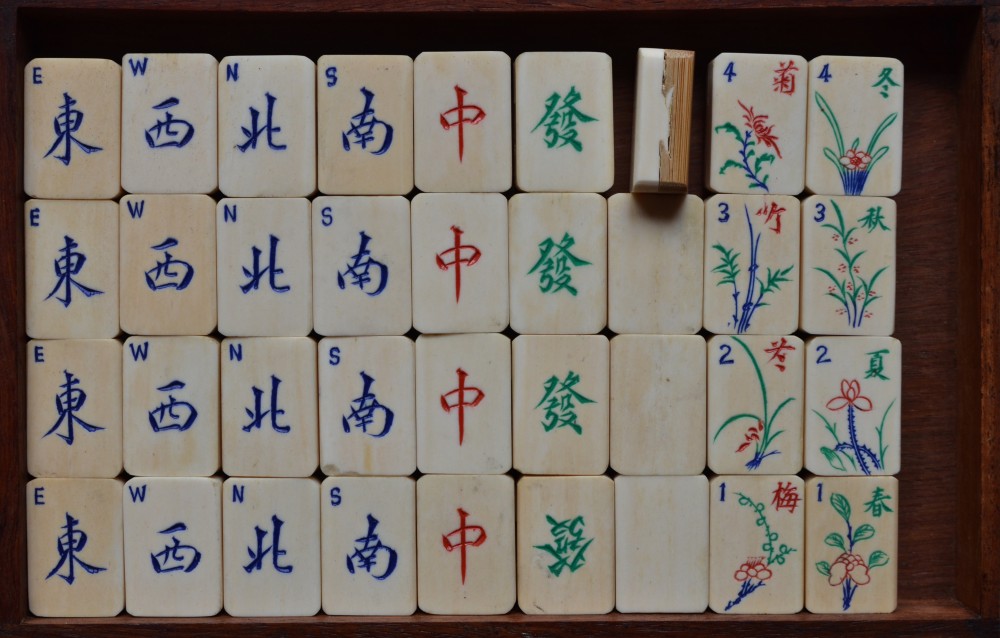 E 東 W 西 N 北 S 南 中 發 4 菊 4 冬
E 東 W 西 N 北 S 南 中 發 3 竹 3 秋
E 東 W 西 N 北 S 南 中 發 2 2 夏
E 東 W 西 N 北 S 南 中 發 1 梅 1 春